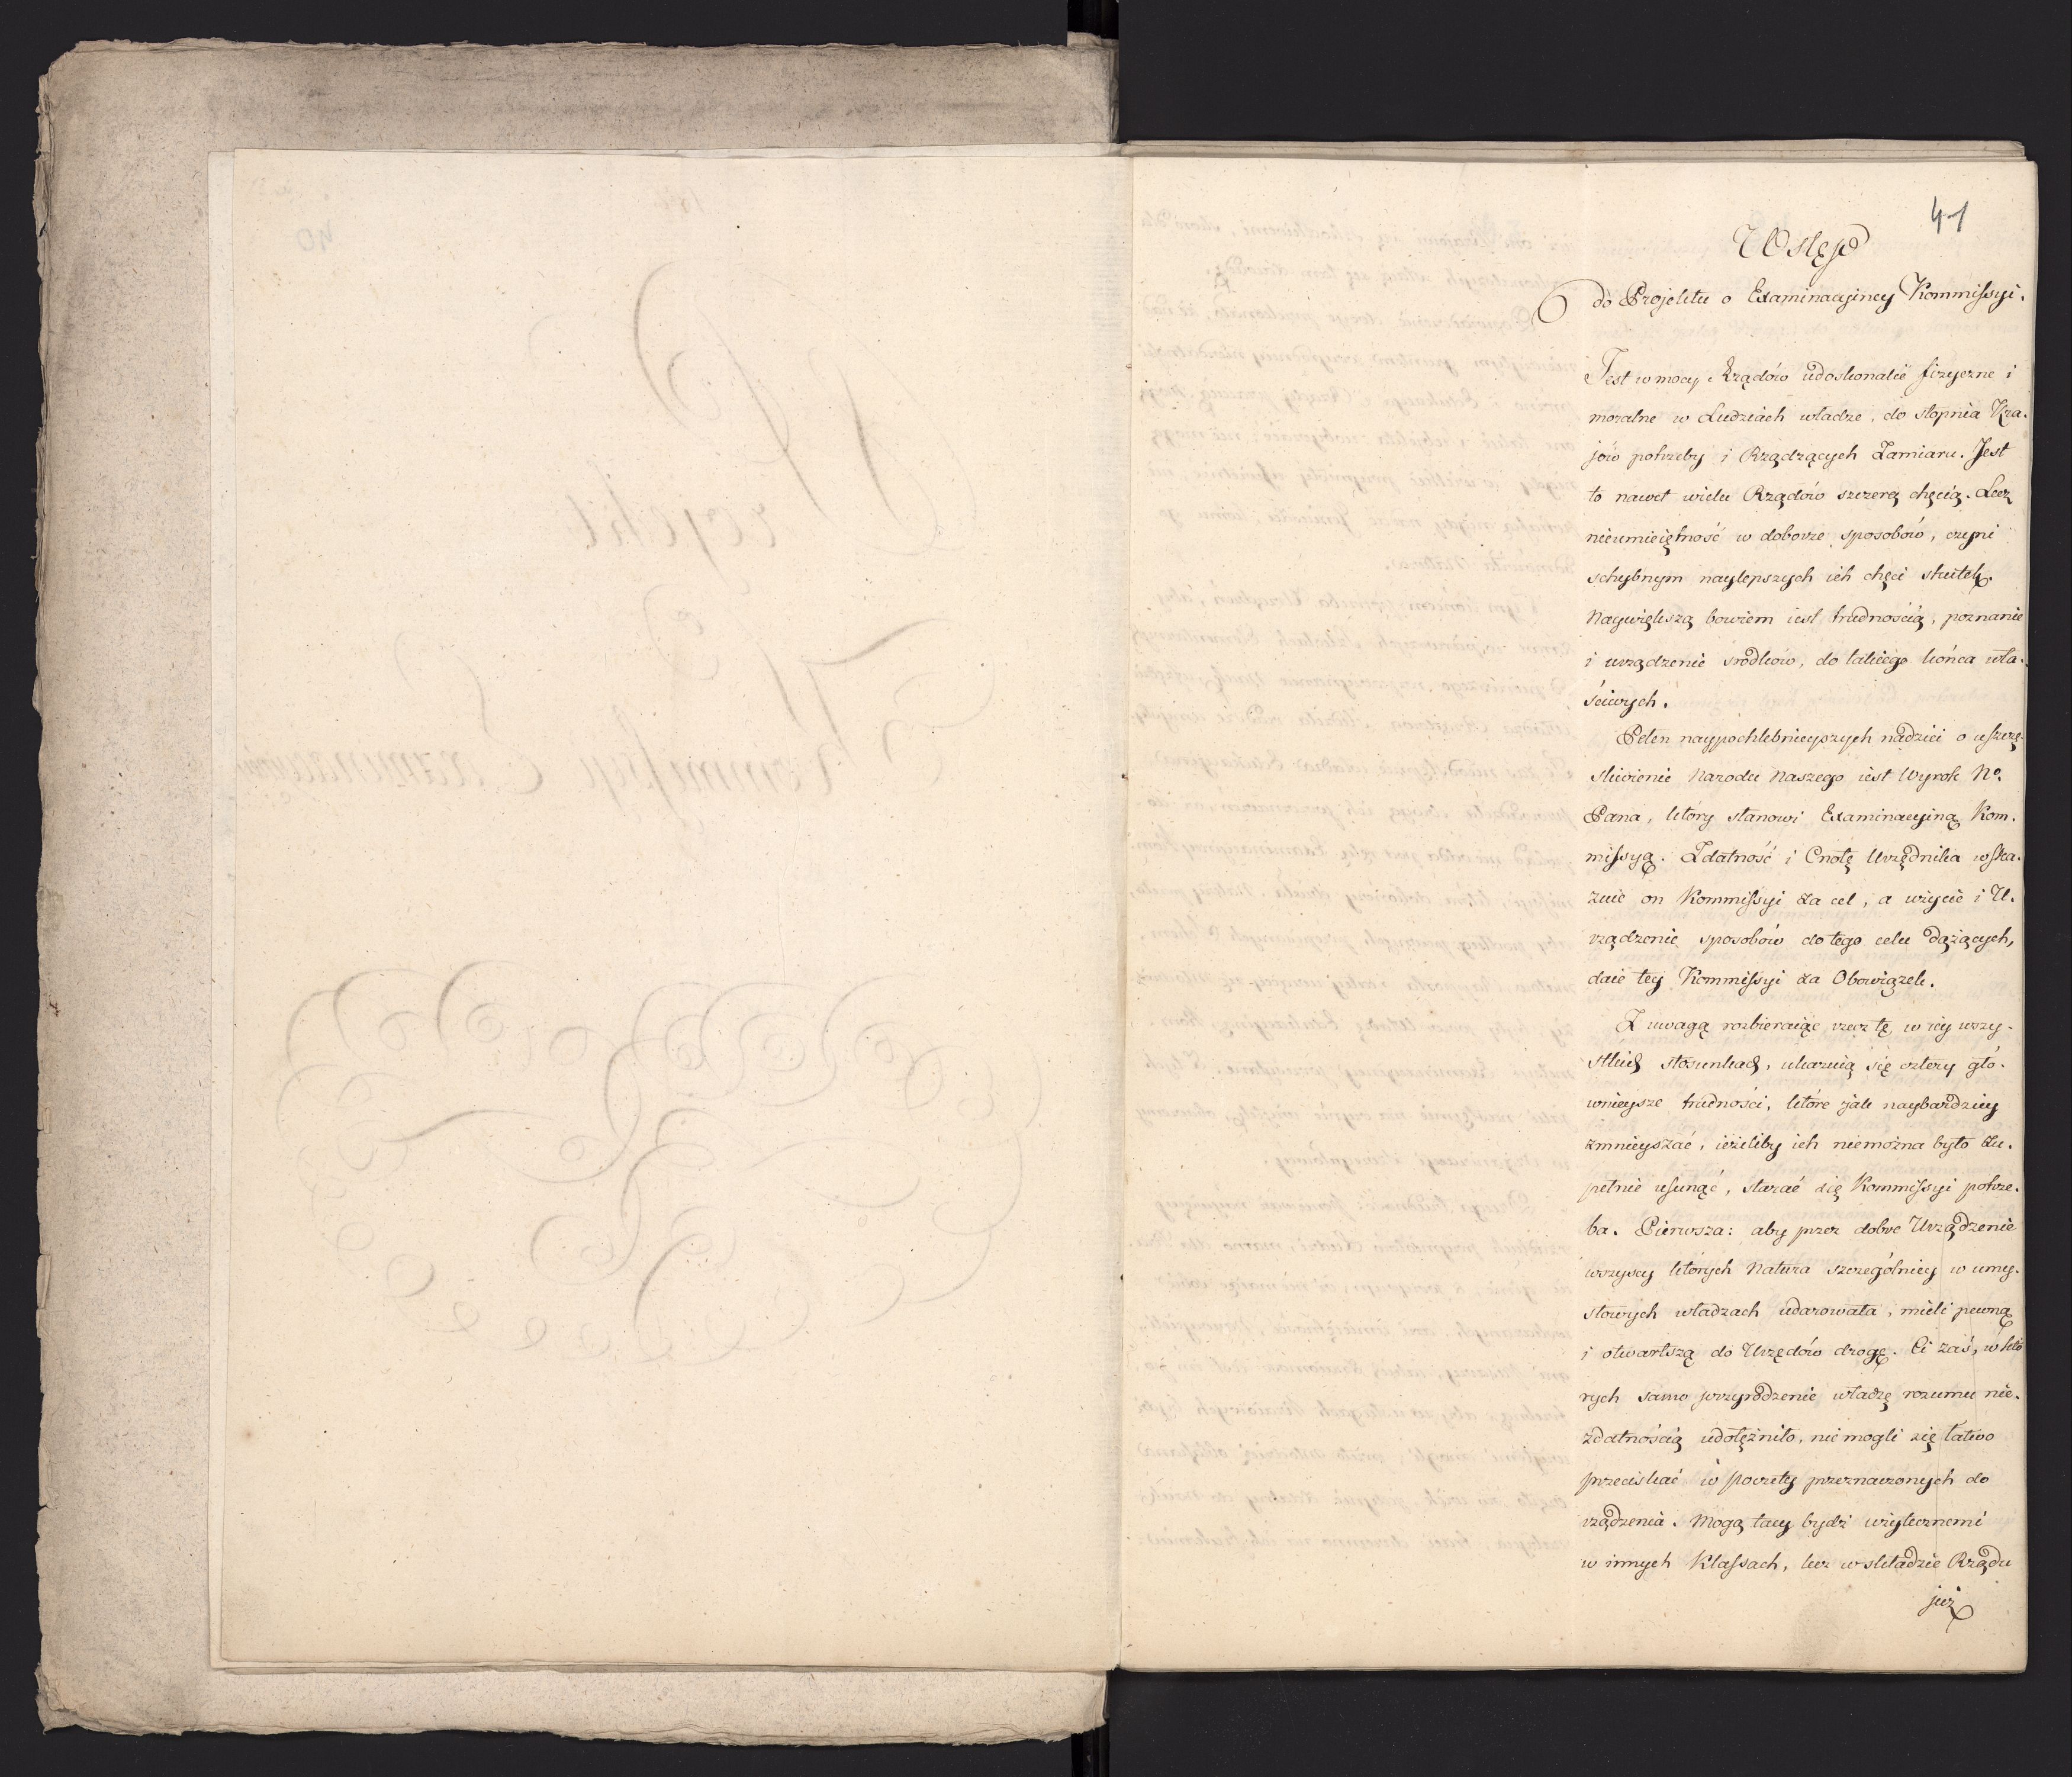 41
Wstęp
do Projektu o Examinacyiney Kommissyi.
Jest w mocy Rządów udoskonalić fizyczne i
moralne w Ludziach władze, do stopnia Kra-
jów potrzeby i Rządzących Zamiaru. Jest
to nawet wielu Rządów szczerą chęcią. Lecz
nieumieiętność w doborze sposobów, czyni
schybnym naylepszych ich chęci skutek.
Naywiększą bowiem iest trudnością, poznanie
i urządzenie srodków, do takiego końca wła-
ściwych.
Pełen naypochlebnieyszych nadziei o uszczę-
śliwienie Narodu Naszego iest Wyrok No.
Pana, który stanowi Examinacyiną Kom-
missyą. Zdatność i Cnotę Urzędnika wska-
zuie on Kommissyi za cel, a użycie i U-
rządzenie sposobów do tego celu dążących,
daie tey Kommissyi za Obowiązek.
Z uwagą rozbieraiąc rzecz tę, w iey wszy-
stkich stosunkach, ukazuią się cztery głó-
wnieysze trudności, które jak naybardziey
zmnieyszać, ieżeliby ich niemożna było zu-
pełnie usunąć, starać się Kommissyi potrze-
ba. Pierwsza: aby przez dobre Urządzenie
wszyscy których Natura szczególniey w umy-
słowych władzach udarowała, mieli pewną
i otwartszą do Urzędów drogę. Ci zaś, w któ
rych samo przyrodzenie władzę rozumu nie-
zdatnością udołężniło, nie mogli się łatwo
przeciskać w poczety przeznaczonych do
rządzenia. Mogą tacy bydź użytecznemi
w innych Klassach, lecz w składzie Rządu
już